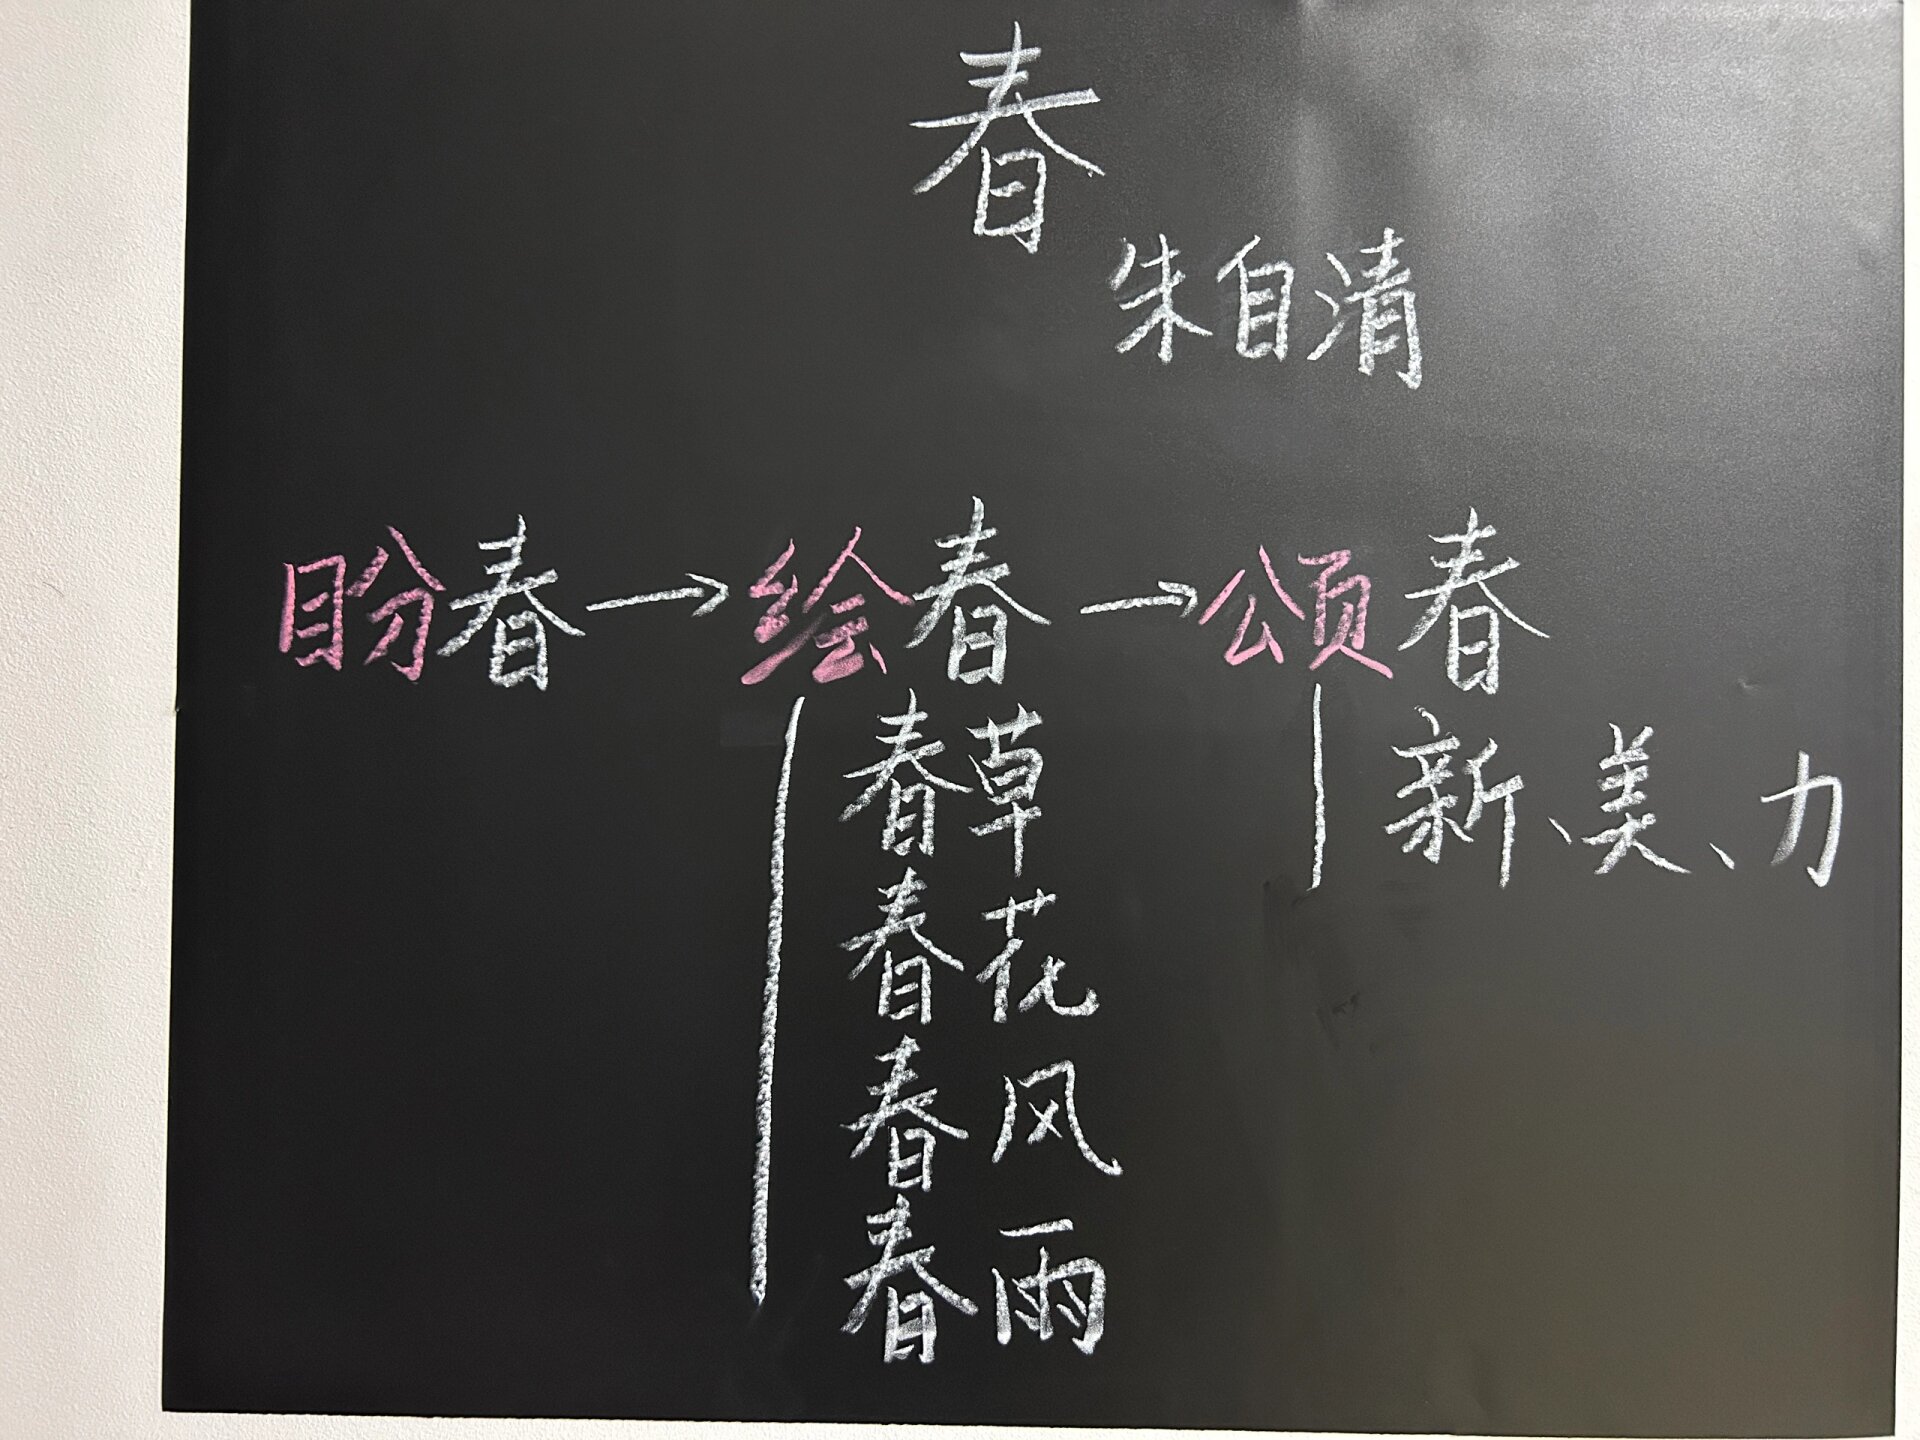 春
朱自清
盼春→绘春→颂春
春草
新、美、力
春花
春风
春雨